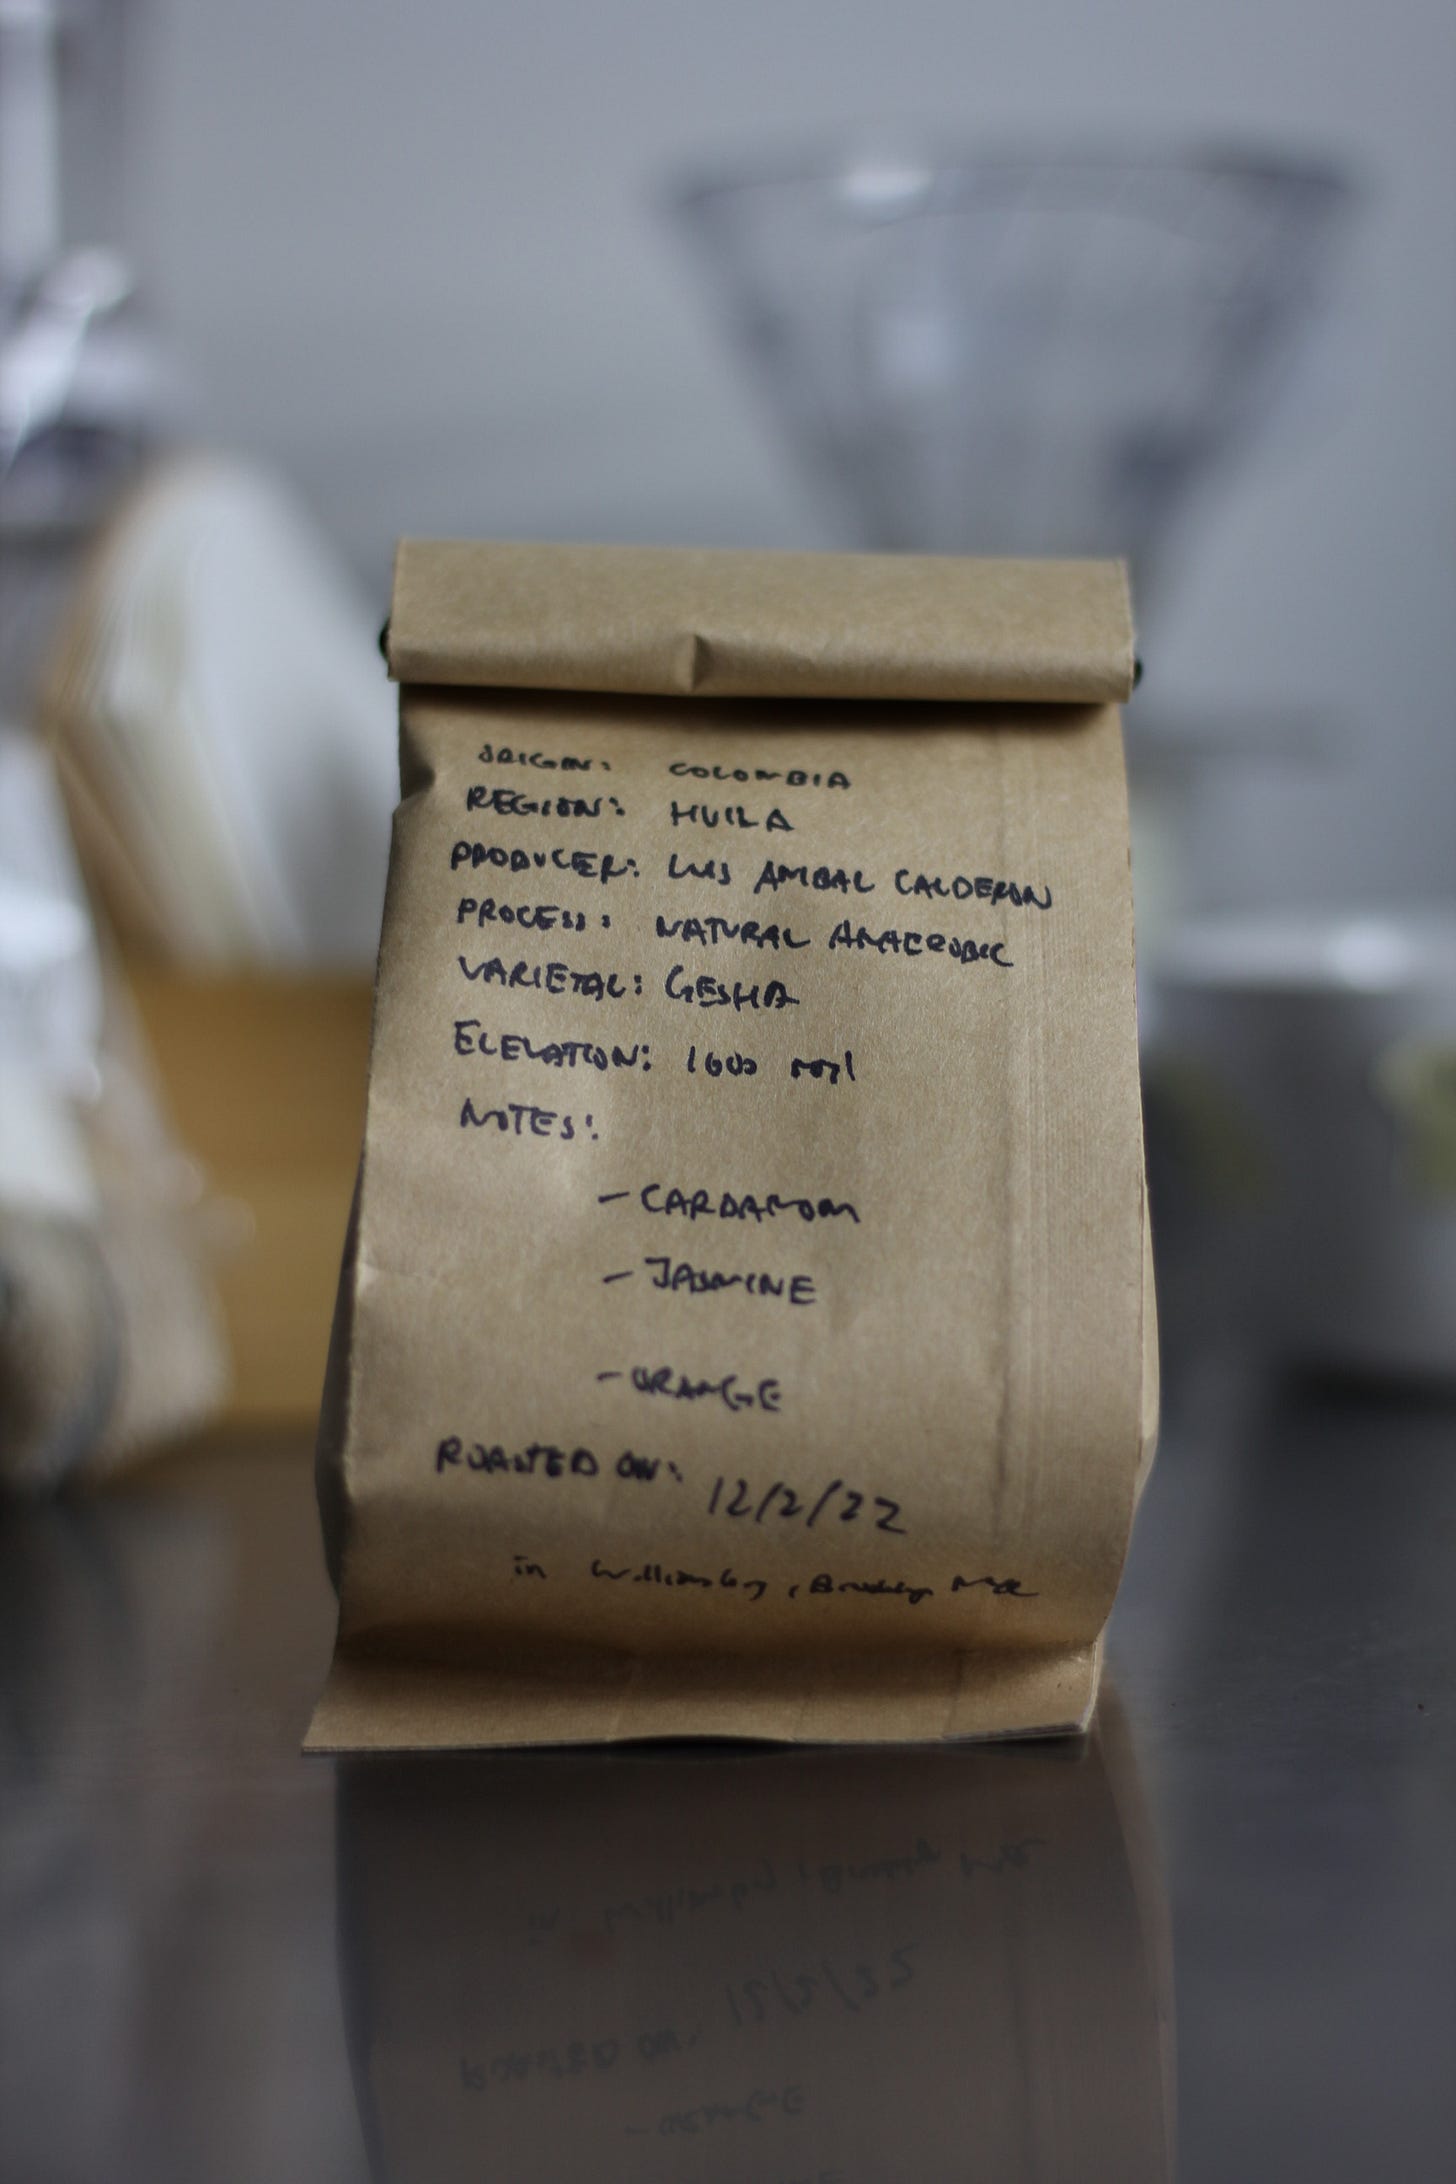 ORIGIN: COLOMBIA
REGION: HUILA
PRODUCER: LUIS AMBAL CALDERON
PROCESS: NATURAL ANAEROBIC
VARIETAL: GESHA
ELEVATION: 1600 masl
NOTES:
- CARDAMOM
- JASMINE
- ORANGE
ROASTED ON: 12/2/22
in Williamsburg, Brooklyn